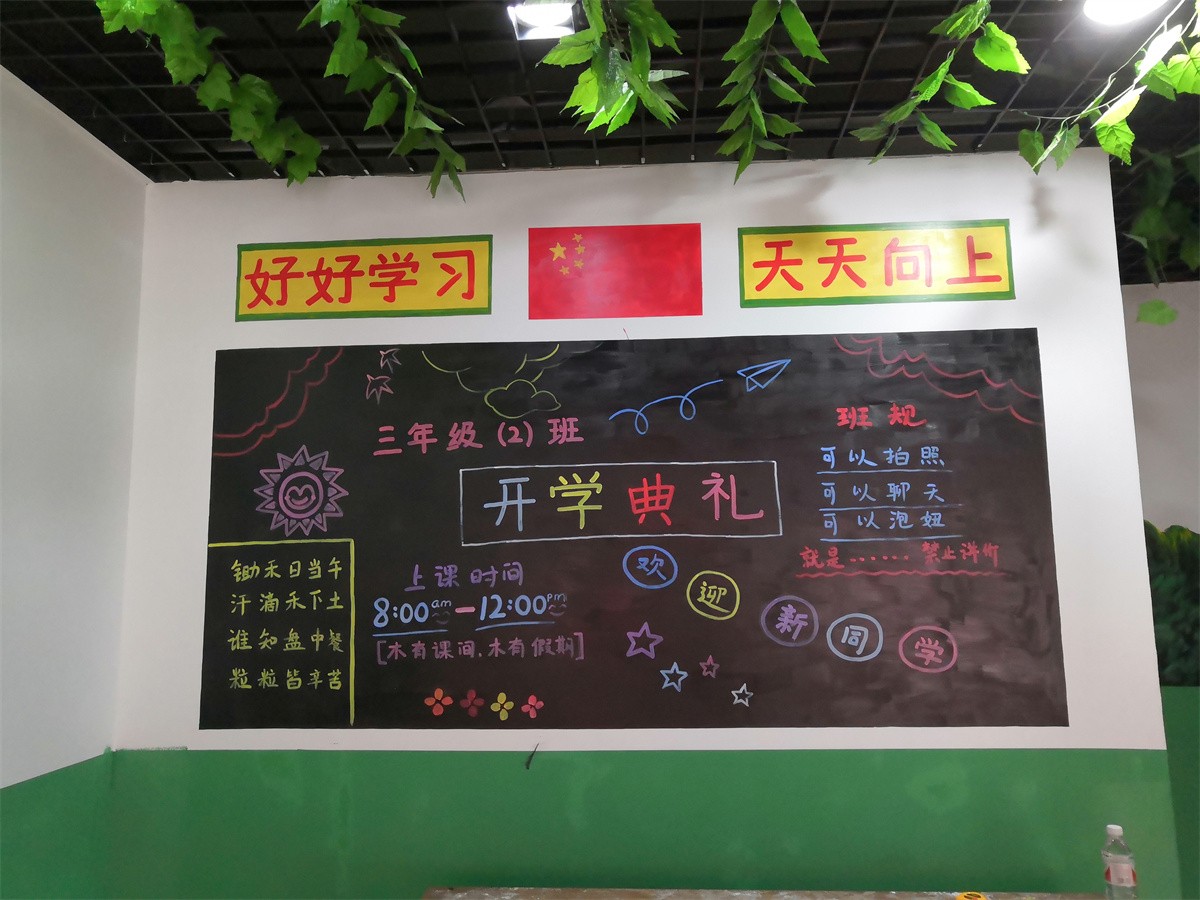 好好学习
天天向上
三年级(2)班
开学典礼
班规
可以拍照
可以聊天
可以泡妞
就是······禁止讲价
锄禾日当午
汗滴禾下土
谁知盘中餐
粒粒皆辛苦
上课时间
8:00am—12:00pm
[木有课间.木有假期]
欢迎新同学